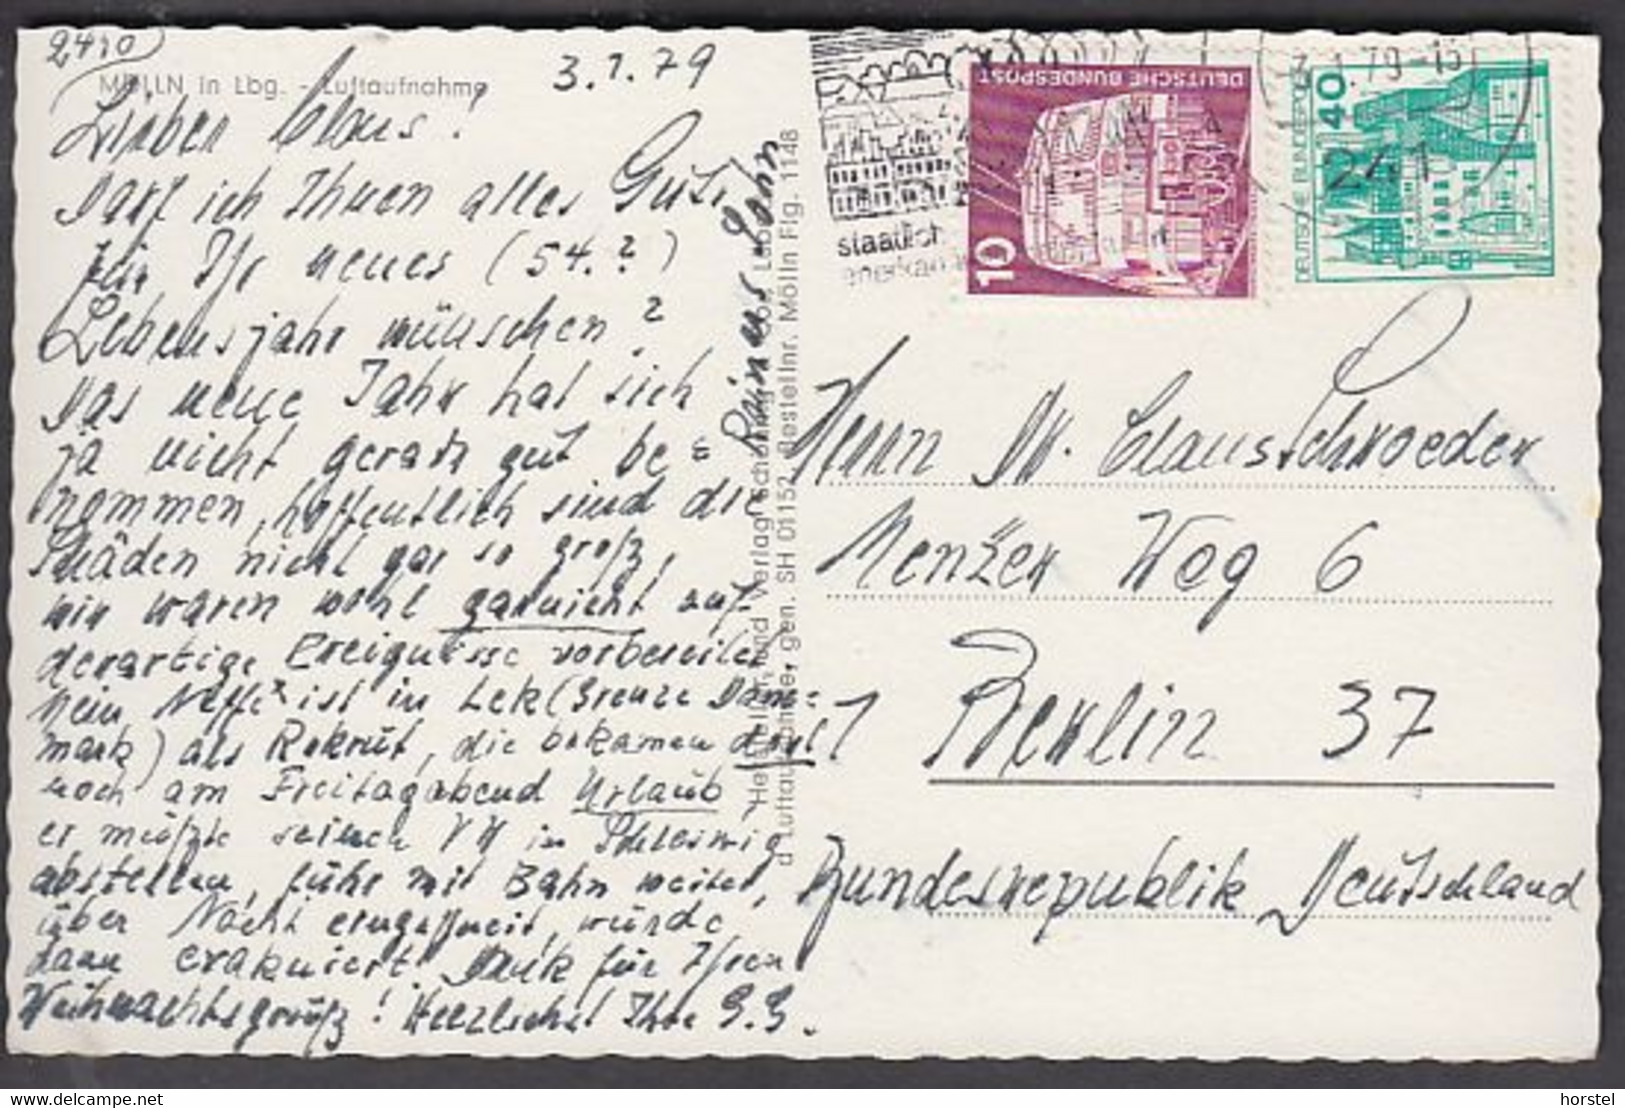 2410
MÖLLN in Lbg. - Luftaufnahme
3.1.79
Lieber Claus!
Darf ich Ihnen alles Gute
für Ihr neues (54.?)
Lebensjahr wünschen?
Das neue Jahr hat sich
ja nicht gerade gut be=
nommen, hoffentlich sind die
Schäden nicht gar so groß,
wir waren wohl garnicht auf
derartige Ereignisse vorbereitet
Mein Neffe x ist in Leck (Grenze Däne=
mark) als Rekrut, die bekamen
noch am Freitagabend Urlaub,
er mußte seinen VW in Schleswig
abstellen, fuhr mit Bahn weiter,
über Nacht eingeschneit, wurde
dann evakuiert. Dank für Ihren
Weihnachtsgruß! Herzlichst Ihre G.G.
x Rainers Sohn
Hersteller und Verlag Schöning & Co., Lübeck
Luftaufnahme, gen. SH 01152, Bestellnr. Mölln Flg. 1148
staatlich
anerkan
DEUTSCHE BUNDESPOST
10
DEUTSCHE BUNDESPOST
40
-3.1.79-15
241
Herrn Dr. Claus Schroeder
Menzer Weg 6
Berlin 37
Bundesrepublik Deutschland
horstel
www.delcampe.net